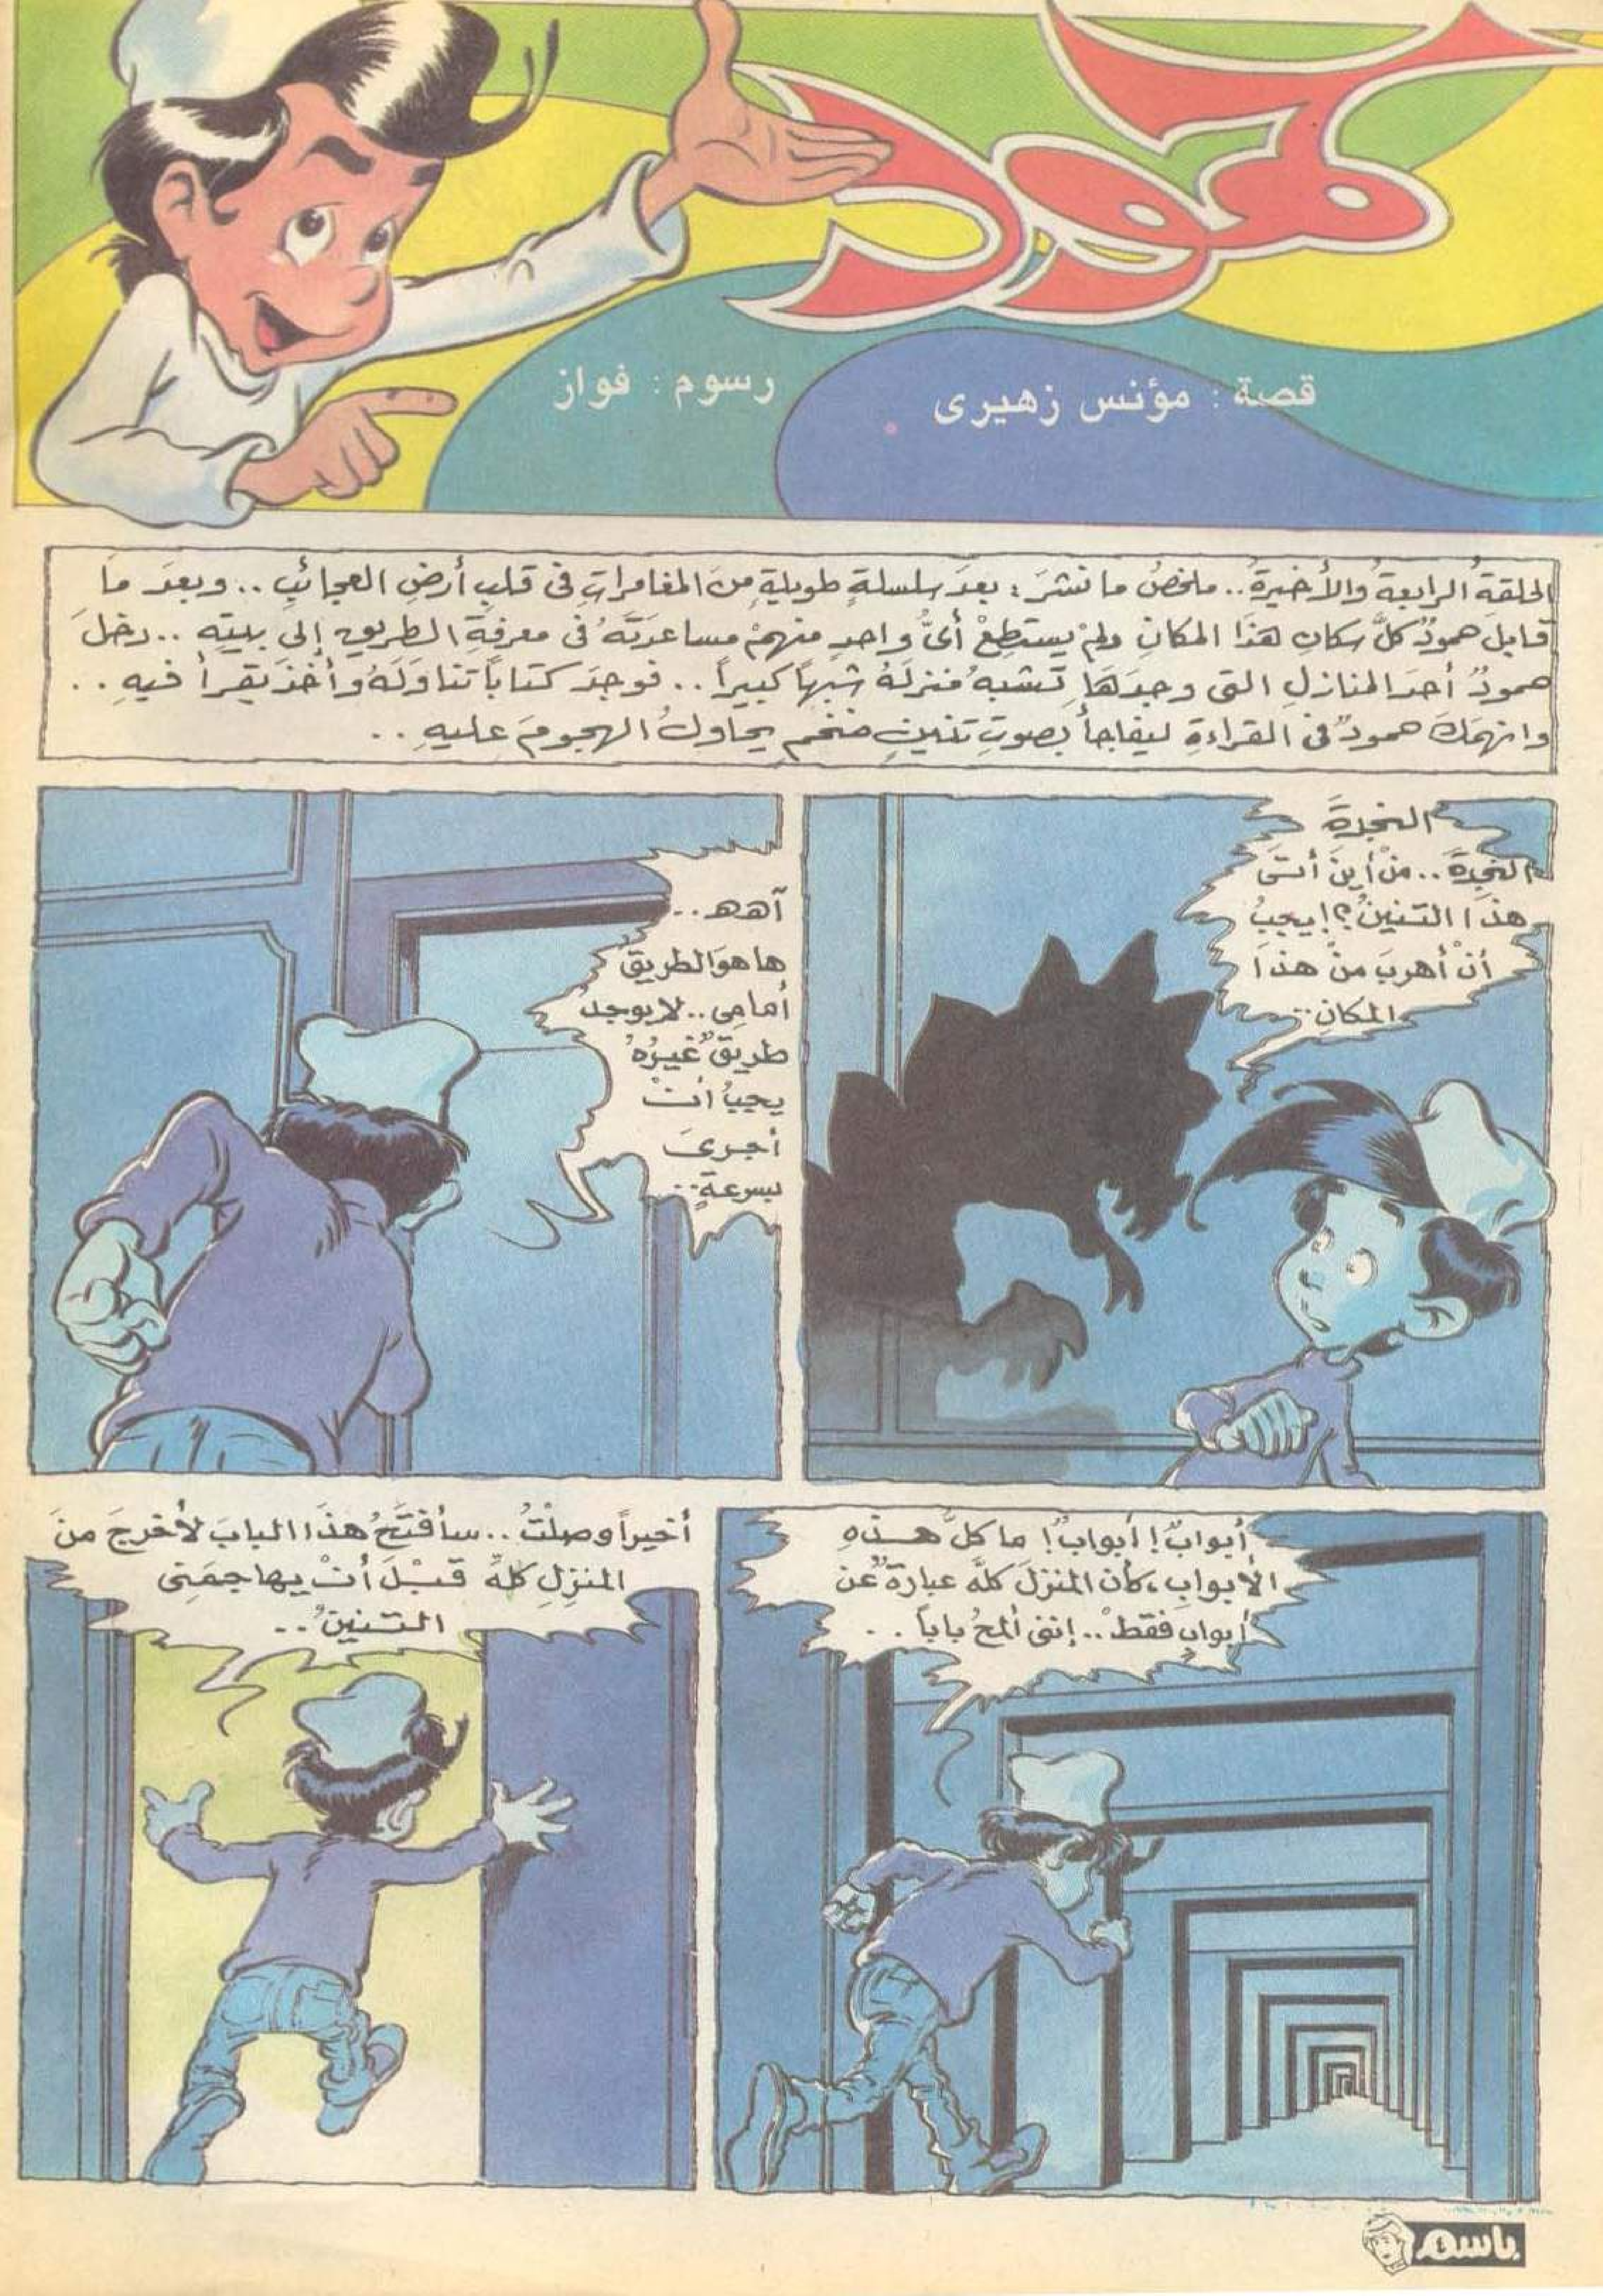 حمود
قصة : مؤنس زهيرى
رسوم : فواز
الحلقةُ الرابعةُ والأخيرةُ.. ملخصُ ما نشرَ : بعدَ سلسلةٍ طويلةٍ منَ المغامراتِ فى قلبِ أرضِ العجائبِ .. وبعدَ ما
قابلَ حمودٌ كلَّ سكانِ هذَا المكانِ ولمْ يستطِعْ أىُّ واحدٍ منهمْ مساعدَتَهُ فى معرفةِ الطريقِ إلى بيتِهِ .. دخلَ
حمودٌ أحدَ المنازلِ التى وجدَهَا تشبهُ منزلَهُ شبهاً كبيراً .. فوجدَ كتاباً تناوَلَهُ وأخذَ يقرأُ فيهِ ..
وانهمَكَ حمودٌ فى القراءةِ ليفاجأَ بصوتِ تنينٍ ضخمٍ يحاولُ الهجومَ عليهِ ..
النجدةَ
النجدةَ .. منْ أينَ أتى
هذَا التنينُ؟! يجبُ
أنْ أهربَ منْ هذَا
المكانِ ..
آهه ..
هاهوَ الطريقُ
أمامِى .. لا يوجدُ
طريقٌ غيرُهُ
يجبُ أنْ
أجرىَ
بسرعةٍ ..
أبوابٌ! أبوابٌ! ما كلُّ هذهِ
الأبوابِ، كأن المنزلَ كلَّهُ عبارةٌ عنْ
أبوابٍ فقطْ .. إننى ألمحُ باباً ..
أخيراً وصلْتُ .. سأفتَحُ هذَا البابَ لأخرجَ منَ
المنزلِ كلِّهِ قبْلَ أنْ يهاجمَنِى
التنينُ ..
باسم